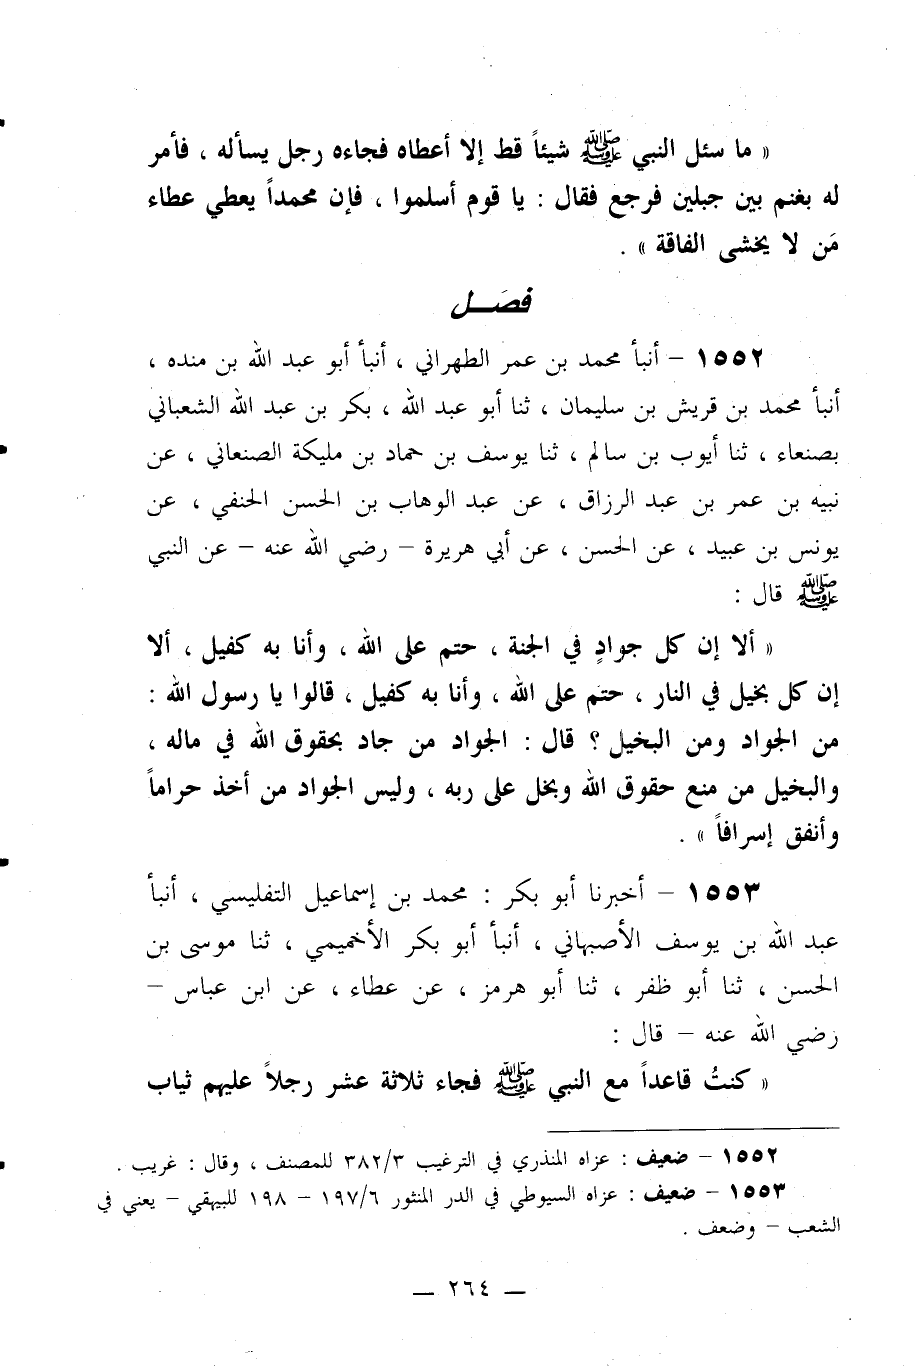 « ما سئل النبي ﷺ شيئاً قط إلا أعطاه فجاءه رجل يسأله ، فأمر
له بغنم بين جبلين فرجع فقال : يا قوم أسلموا ، فإن محمداً يعطي عطاء
مَن لا يخشى الفاقة » .
فصَـــل
١٥٥٢ – أنبأ محمد بن عمر الطهراني ، أنبأ أبو عبد الله بن منده ،
أنبأ محمد بن قريش بن سليمان ، ثنا أبو عبد الله ، بكر بن عبد الله الشعباني
بصنعاء ، ثنا أيوب بن سالم ، ثنا يوسف بن حماد بن مليكة الصنعاني ، عن
نبيه بن عمر بن عبد الرزاق ، عن عبد الوهاب بن الحسن الحنفي ، عن
يونس بن عبيد ، عن الحسن ، عن أبي هريرة – رضي الله عنه – عن النبي
ﷺ قال :
« ألا إن كل جوادٍ في الجنة ، حتم على الله ، وأنا به كفيل ، ألا
إن كل بخيل في النار ، حتم على الله ، وأنا به كفيل ، قالوا يا رسول الله :
من الجواد ومن البخيل ؟ قال : الجواد من جاد بحقوق الله في ماله ،
والبخيل من منع حقوق الله وبخل على ربه ، وليس الجواد من أخذ حراماً
وأنفق إسرافاً » .
١٥٥٣ – أخبرنا أبو بكر : محمد بن إسماعيل التفليسي ، أنبأ
عبد الله بن يوسف الأصبهاني ، أنبأ أبو بكر الأخميمي ، ثنا موسى بن
الحسن ، ثنا أبو ظفر ، ثنا أبو هرمز ، عن عطاء ، عن ابن عباس –
رضي الله عنه – قال :
« كنتُ قاعداً مع النبي ﷺ فجاء ثلاثة عشر رجلاً عليهم ثياب
١٥٥٢ – ضعيف : عزاه المنذري في الترغيب ٣٨٢/٣ للمصنف ، وقال : غريب .
١٥٥٣ – ضعيف : عزاه السيوطي في الدر المنثور ١٩٧/٦ – ١٩٨ للبيهقي – يعني في
الشعب – وضعف .
— ٢٦٤ —